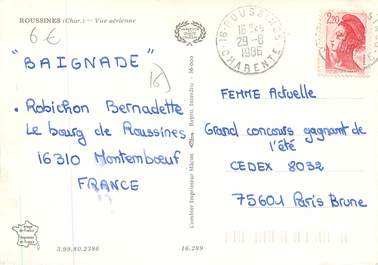 ROUSSINES (Char.) — Vue aérienne
6€
"BAIGNADE"
16)
• Robichon Bernadette
Le bourg de Roussines
16310 Montemboeuf
FRANCE
3.99.80.2386
16.289
Combier Imprimeur Mâcon
Repro. Interdite - 36-000
16 - ROUSSINES
29-8
1986
CHARENTE
2,20
FEMME Actuelle
Grand concours gagnant de
l'été
CEDEX 8032
75601 Paris Brune